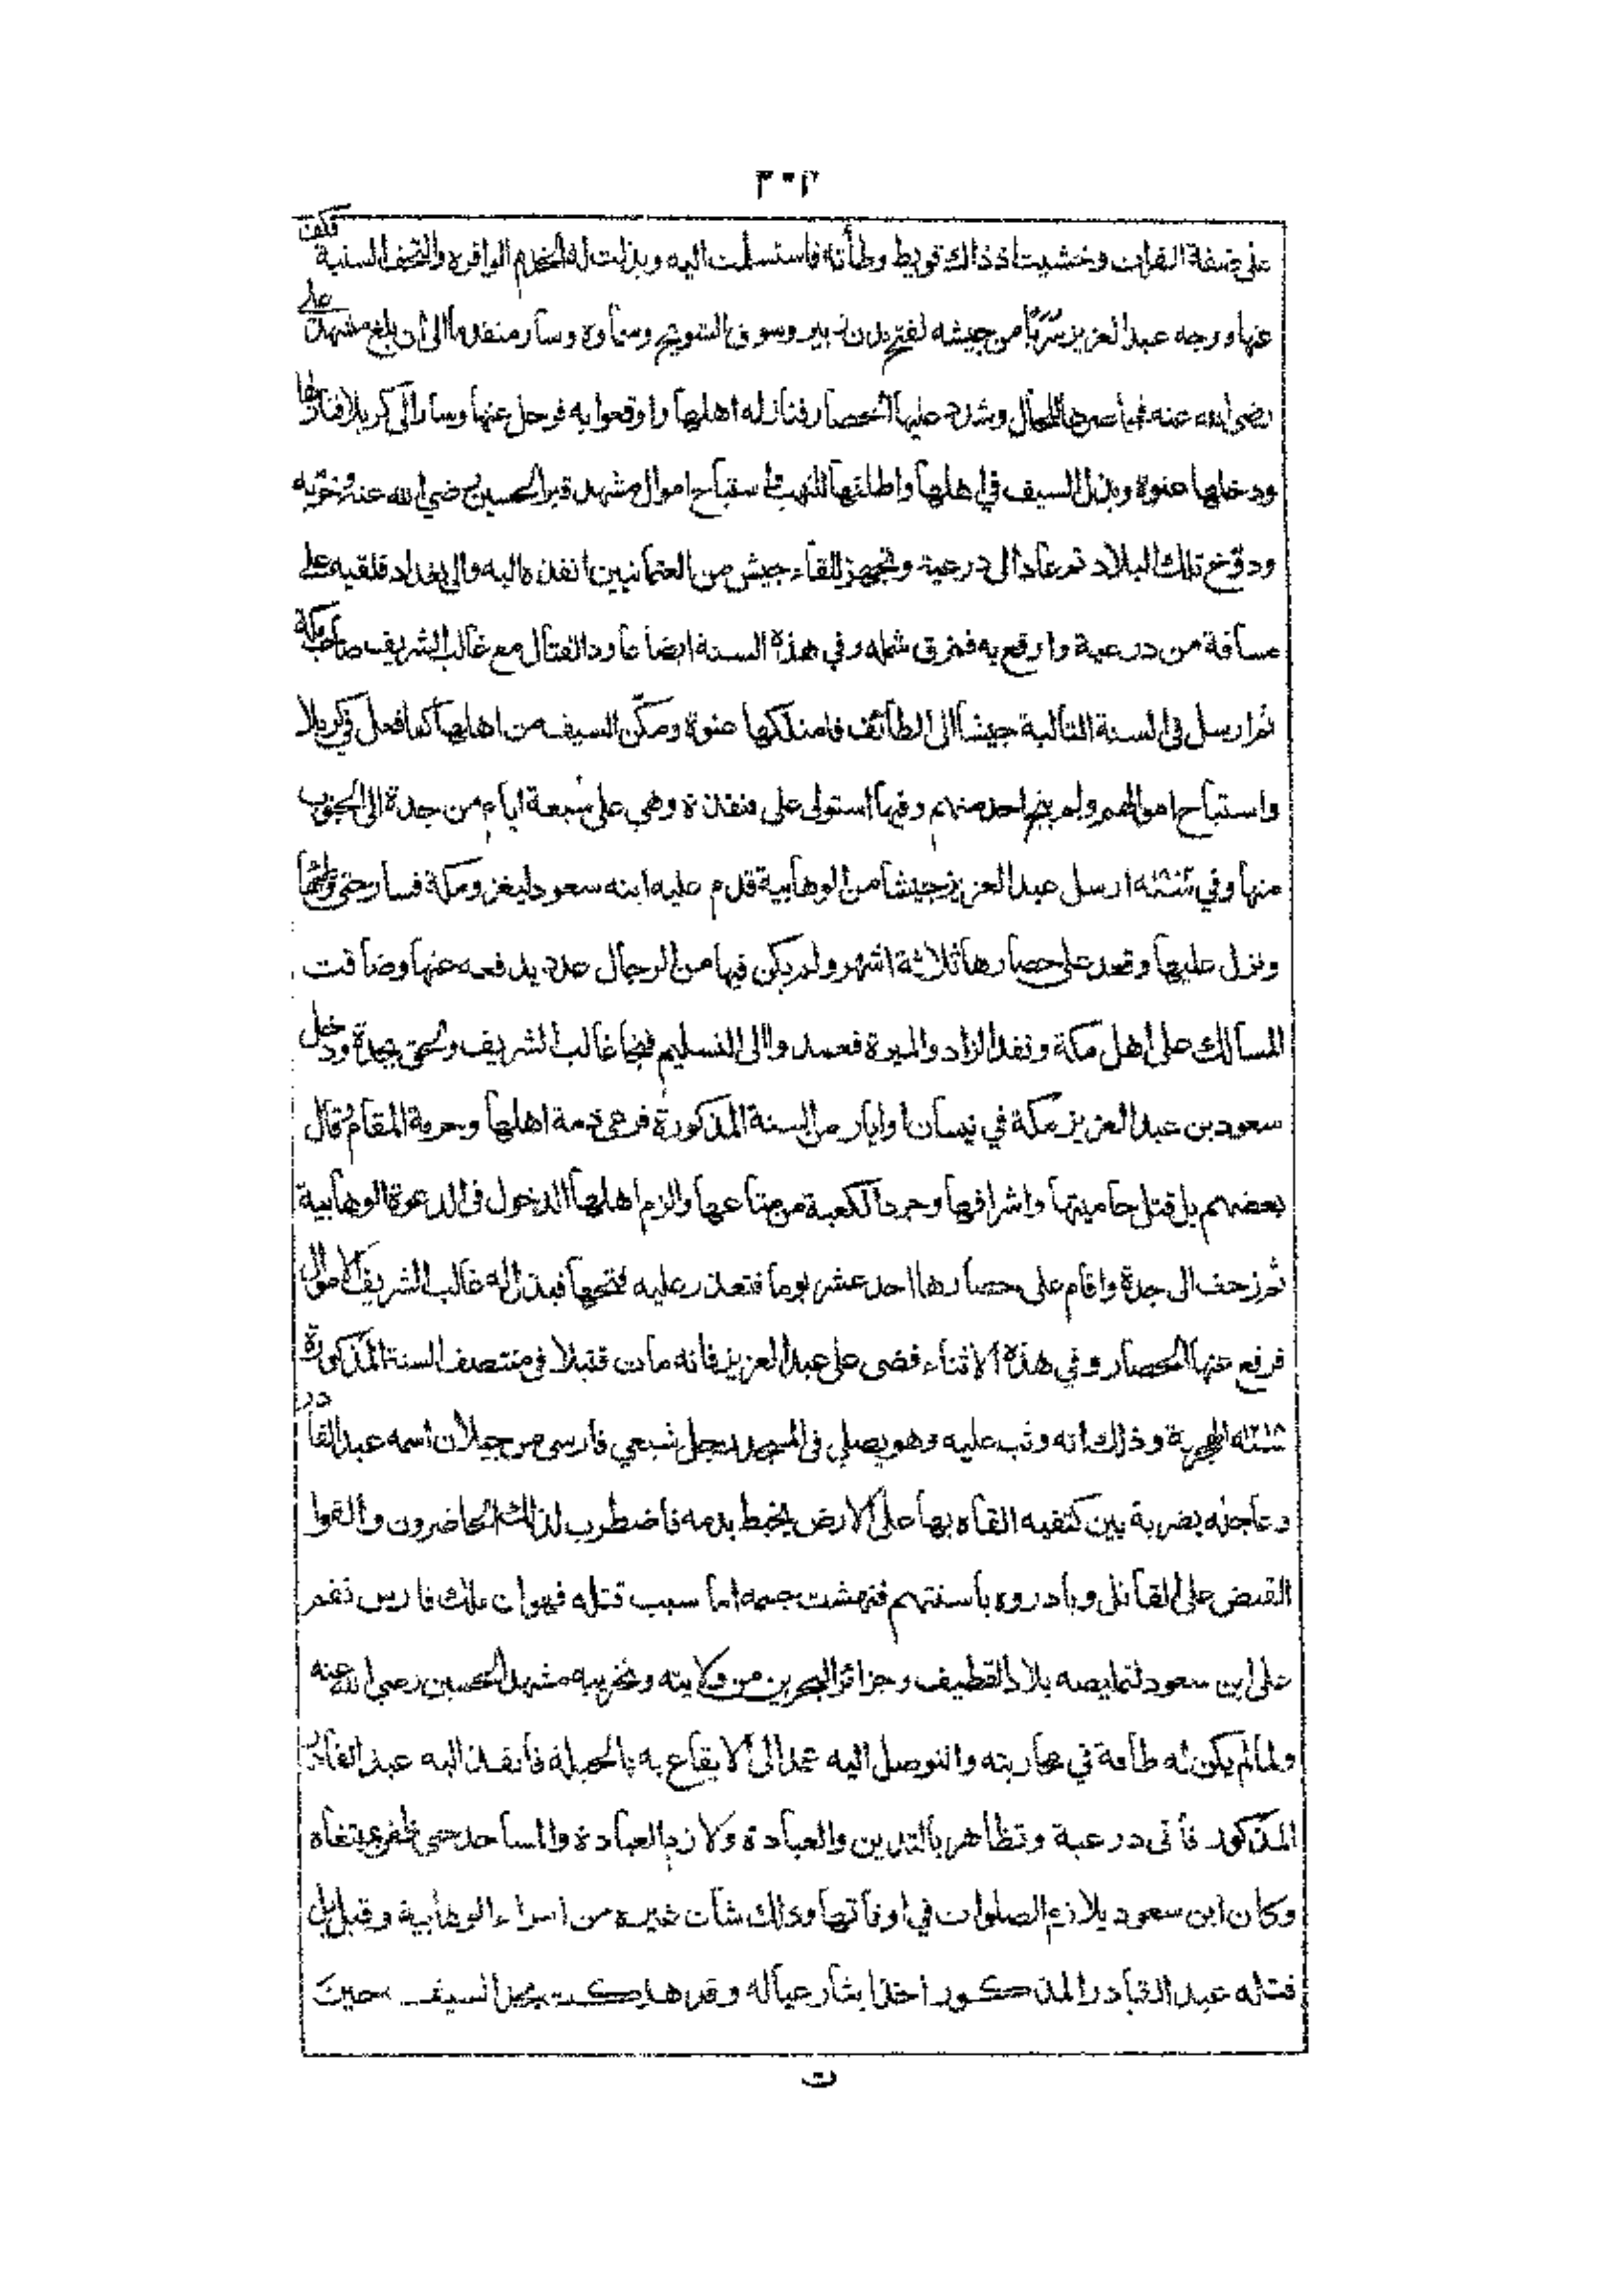 ٣٠٢
على ضفة الفرات وخشيت اذ ذاك قويط وطأته فاستسلمت اليه وبذلت له الخدم الوافرة والتحف السنية فكف
عنها ووجه عبد العزيز سربًا من جيشه لفتح مدن زبير وسوق الشويخ وسماوة وسار منفردا الى ان بلغ مشهد علي
رضى الله عنه فحاصرها للحال وشدد عليها الحصار فنازله اهلها واوقعوا به فرحل عنها وسار الى كربلا
ودخلها عنوة وبذل السيف في اهلها واطلقها للنهب واستباح اموال مشهد قبر الحسين رضي الله عنه وخرّبه
ودوّخ تلك البلاد ثم عاد الى درعية وتجهز للقاء جيش من العثمانيين انفذه اليه والى بغداد فلقيه على
مسافة من درعية واوقع به فمزق شمله وفي هذه السنة ايضا عاود القتال مع غالب الشريف صاحب مكة
ثم ارسل فى السنة التالية جيشا الى الطائف فامتلكها عنوة ومكّن السيف من اهلها كما فعل في كربلا
واستباح اموالهم ولم ينج احد منهم وفيها استولى على قنفذة وهي على سبعة ايام من جدة الى الجنوب
منها وفي سنة ارسل عبد العزيز جيشا من الوهابية قدم عليه ابنه سعود ليغزو مكة فسار حتى وطئها
ونزل عليها وقعد على حصارها ثلاثة اشهر ولم يكن فيها من الرجال عدد يدفعه عنها وضاقت
المسالك على اهل مكة ونفد الزاد والميرة فعمدوا الى التسليم فنجا غالب الشريف ولحق بجدة ودخل
سعود بن عبد العزيز مكة في نيسان او ايار من السنة المذكورة فرعى ذمة اهلها وحرمة المقام وقال
بعضهم بل قتل حاميتها واشرافها وجرد الكعبة من متاعها والزم اهلها الدخول فى الدعوة الوهابية
ثم زحف الى جدة واقام على حصارها احد عشر يوما فتعذر عليه فتحها فبذل له غالب الشريف الاموال
فرفع عنها الحصار وفي هذه الاثناء قضى على عبد العزيز فانه مات قتيلا فى منتصف السنة المذكورة
الهجرية وذلك انه وثب عليه وهو يصلي فى المسجد رجل شيعي فارسى من جيلان اسمه عبد القا
در عاجله بضربة بين كتفيه القاه بها على الارض يخبط بدمه فاضطرب لذلك الحاضرون والقوا
القبض على القاتل وبادروه باسنتهم فنهشت جسمه اما سبب قتله فهو ان ملك فارس نقم
على ابن سعود لتمليصه بلاد القطيف وجزائر البحرين من ولايته وتخريبه مشهد الحسين رضي الله عنه
ولما لم يكن له طاقة في محاربته والتوصل اليه عمد الى الايقاع به بالحيلة فانفذ اليه عبد القادر
المذكور فأتى درعية وتظاهر بالتدين والعبادة ولازم العبادة والمساجد حتى ظفر بمبتغاه
وكان ابن سعود يلازم الصلوات في اوقاتها وذلك شأن غيره من امراء الوهابية وقيل بل
قتله عبد القادر المذكور اخذا بثار عياله وقد هلكت بهذا السيف حين
ت